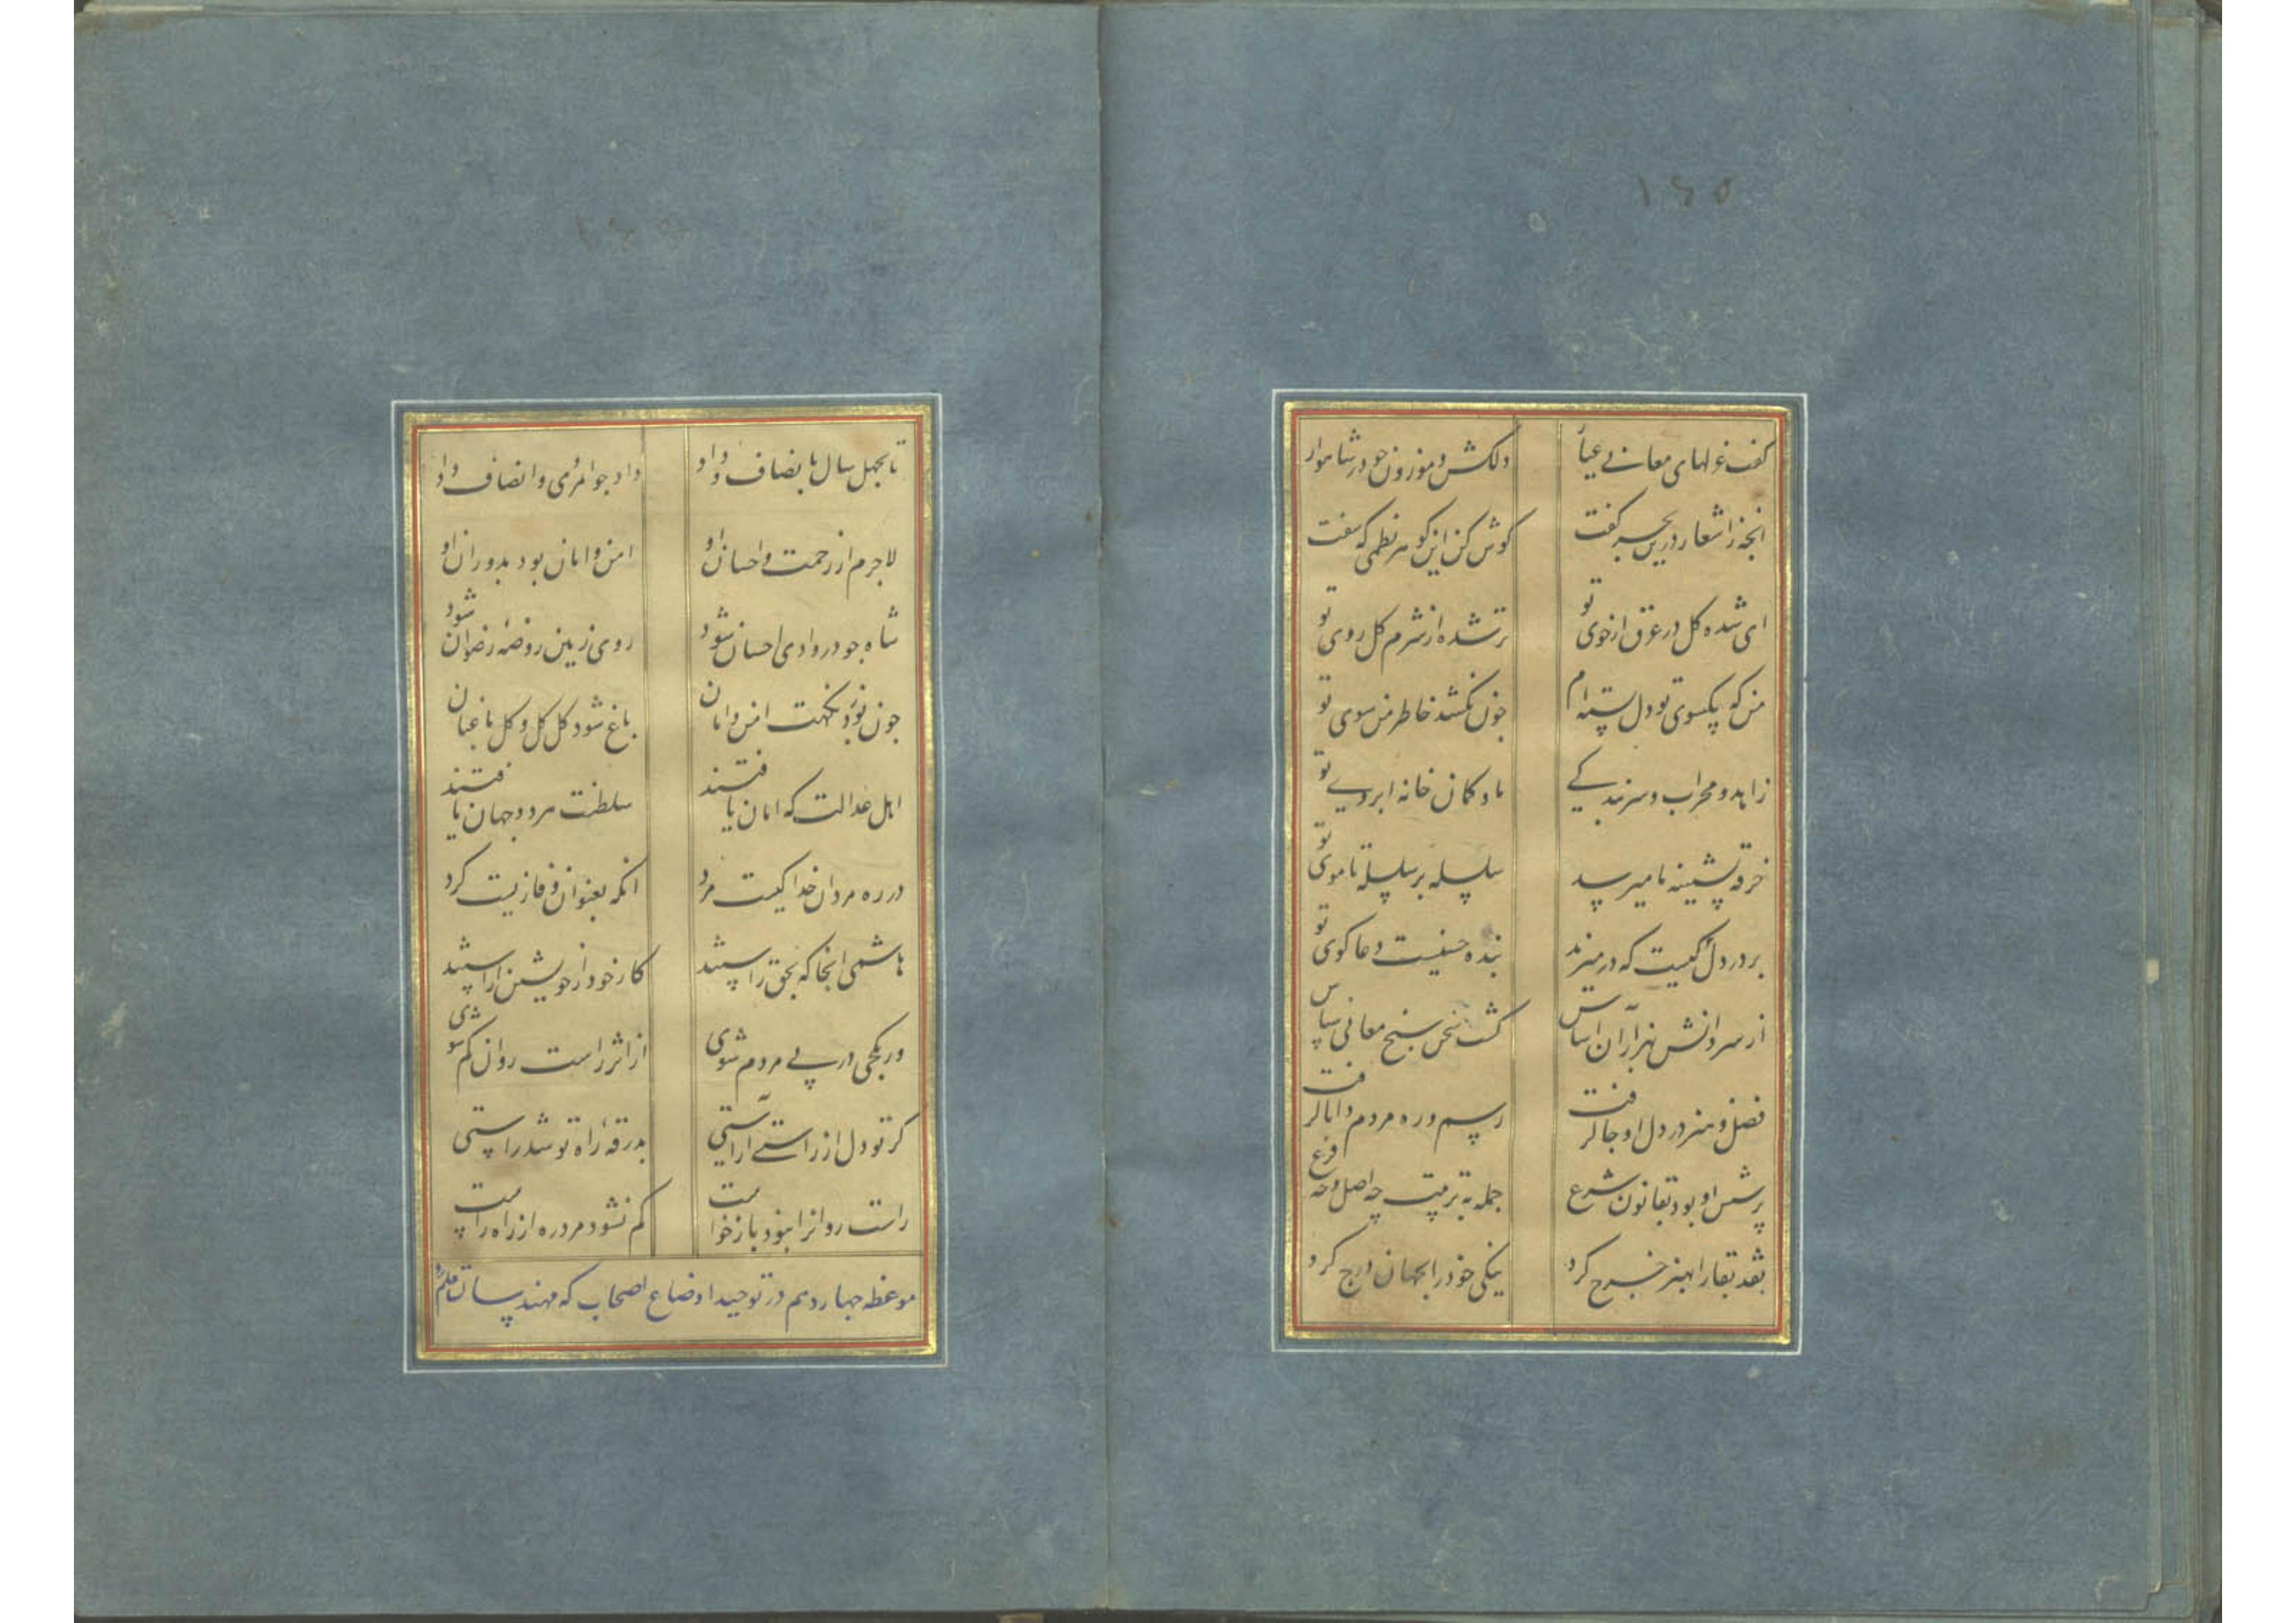 ١٦٥
گفت غزلهای معانی عیار دلکش و موزون چو در شاهوار
انچه ز اشعار درین بحر گفت گوش کن این گوهر نظمی که سفت
ای شده گل در عرق از خوی تو تر شده از شرم گل روی تو
من که بگیسوی تو دل بسته ام چون نکشد خاطر من سوی تو
زاهد و محراب و سر بندگی ما و کمان خانه ابروی تو
خرقه پشمینه ما میرسد سلسله بر سلسله تا موی تو
بر در دل کیست که در میزند بنده حسنیست دعا گوی تو
از سر دانش هنر آن اساس گشت سخن سنج معانی سپاس
فضل و هنر در دل او جا گرفت رسم و ره مردم دانا گرفت
پرسش او بود بقانون شرع جمله به ترتیب چه اصل و چه فرع
نقد بقا را بهنر خرج کرد نیکی خود را بجهان درج کرد
تا بچهل سال بانصاف و داد داد جوانمردی و انصاف داد
لاجرم از رحمت و احسان او امن و امان بود بدوران او
شاه چو در وادی احسان شود روی زمین روضه رضوان شود
چون بوزد نکهت امن و امان باغ شود گل گل و گل باغبان
اهل عدالت که امان یافتند سلطنت هر دو جهان یافتند
در ره مردان خدا کیست مرد انکه بعنوان وفا زیست کرد
هاشمی انجا که بحق راستند کار خود از خویشتن آراستند
ور بکجی در پی مردم شوی از اثر راست روان گم شوی
گر تو دل از راستی آراستی بدرقه راه تو شد راستی
راست روانرا نبود بازخواست گم نشود مرد ره از راه راست
موعظه چهاردهم در توحید اوضاع اصحاب که مهندسان